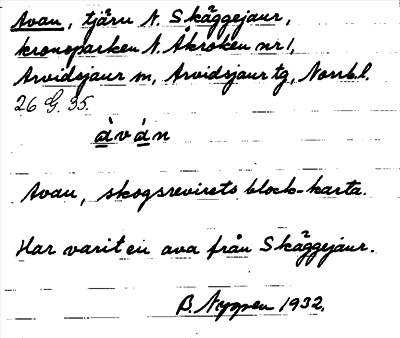 Avan, tjärn N. Skäggejaur,
kronoparken N. Åkroken nr 1,
Arvidsjaur sn, Arvidsjaur tg, Norrb. l.
26 G. 35.
àván
Avan, skogsrevirets block-karta.
Har varit en ava från Skäggejaur.
B. Nygren 1932.